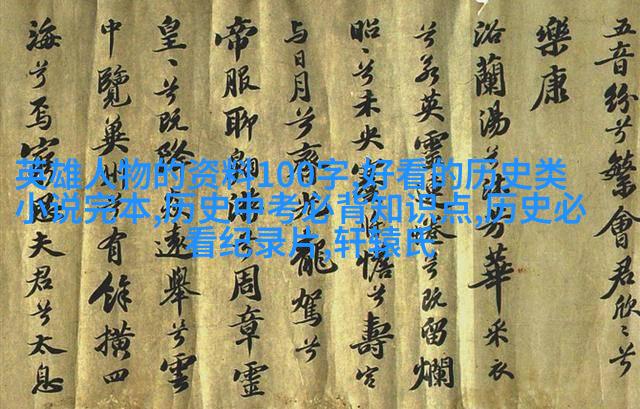 五音紛兮繁會君欣〻兮
樂康
浴蘭湯兮沐芳華采衣
兮若英靈兮既留爛
昭〻兮未央憺兮壽宮
与日月兮龍駕兮
帝服聊周章靈
皇〻兮既遠舉兮雲
中覽冀州有餘橫四
海兮焉夫君兮太息
英雄人物的资料100字,好看的历史类
小说完本,历史中考必背知识点,历史必
看纪录片,轩辕氏